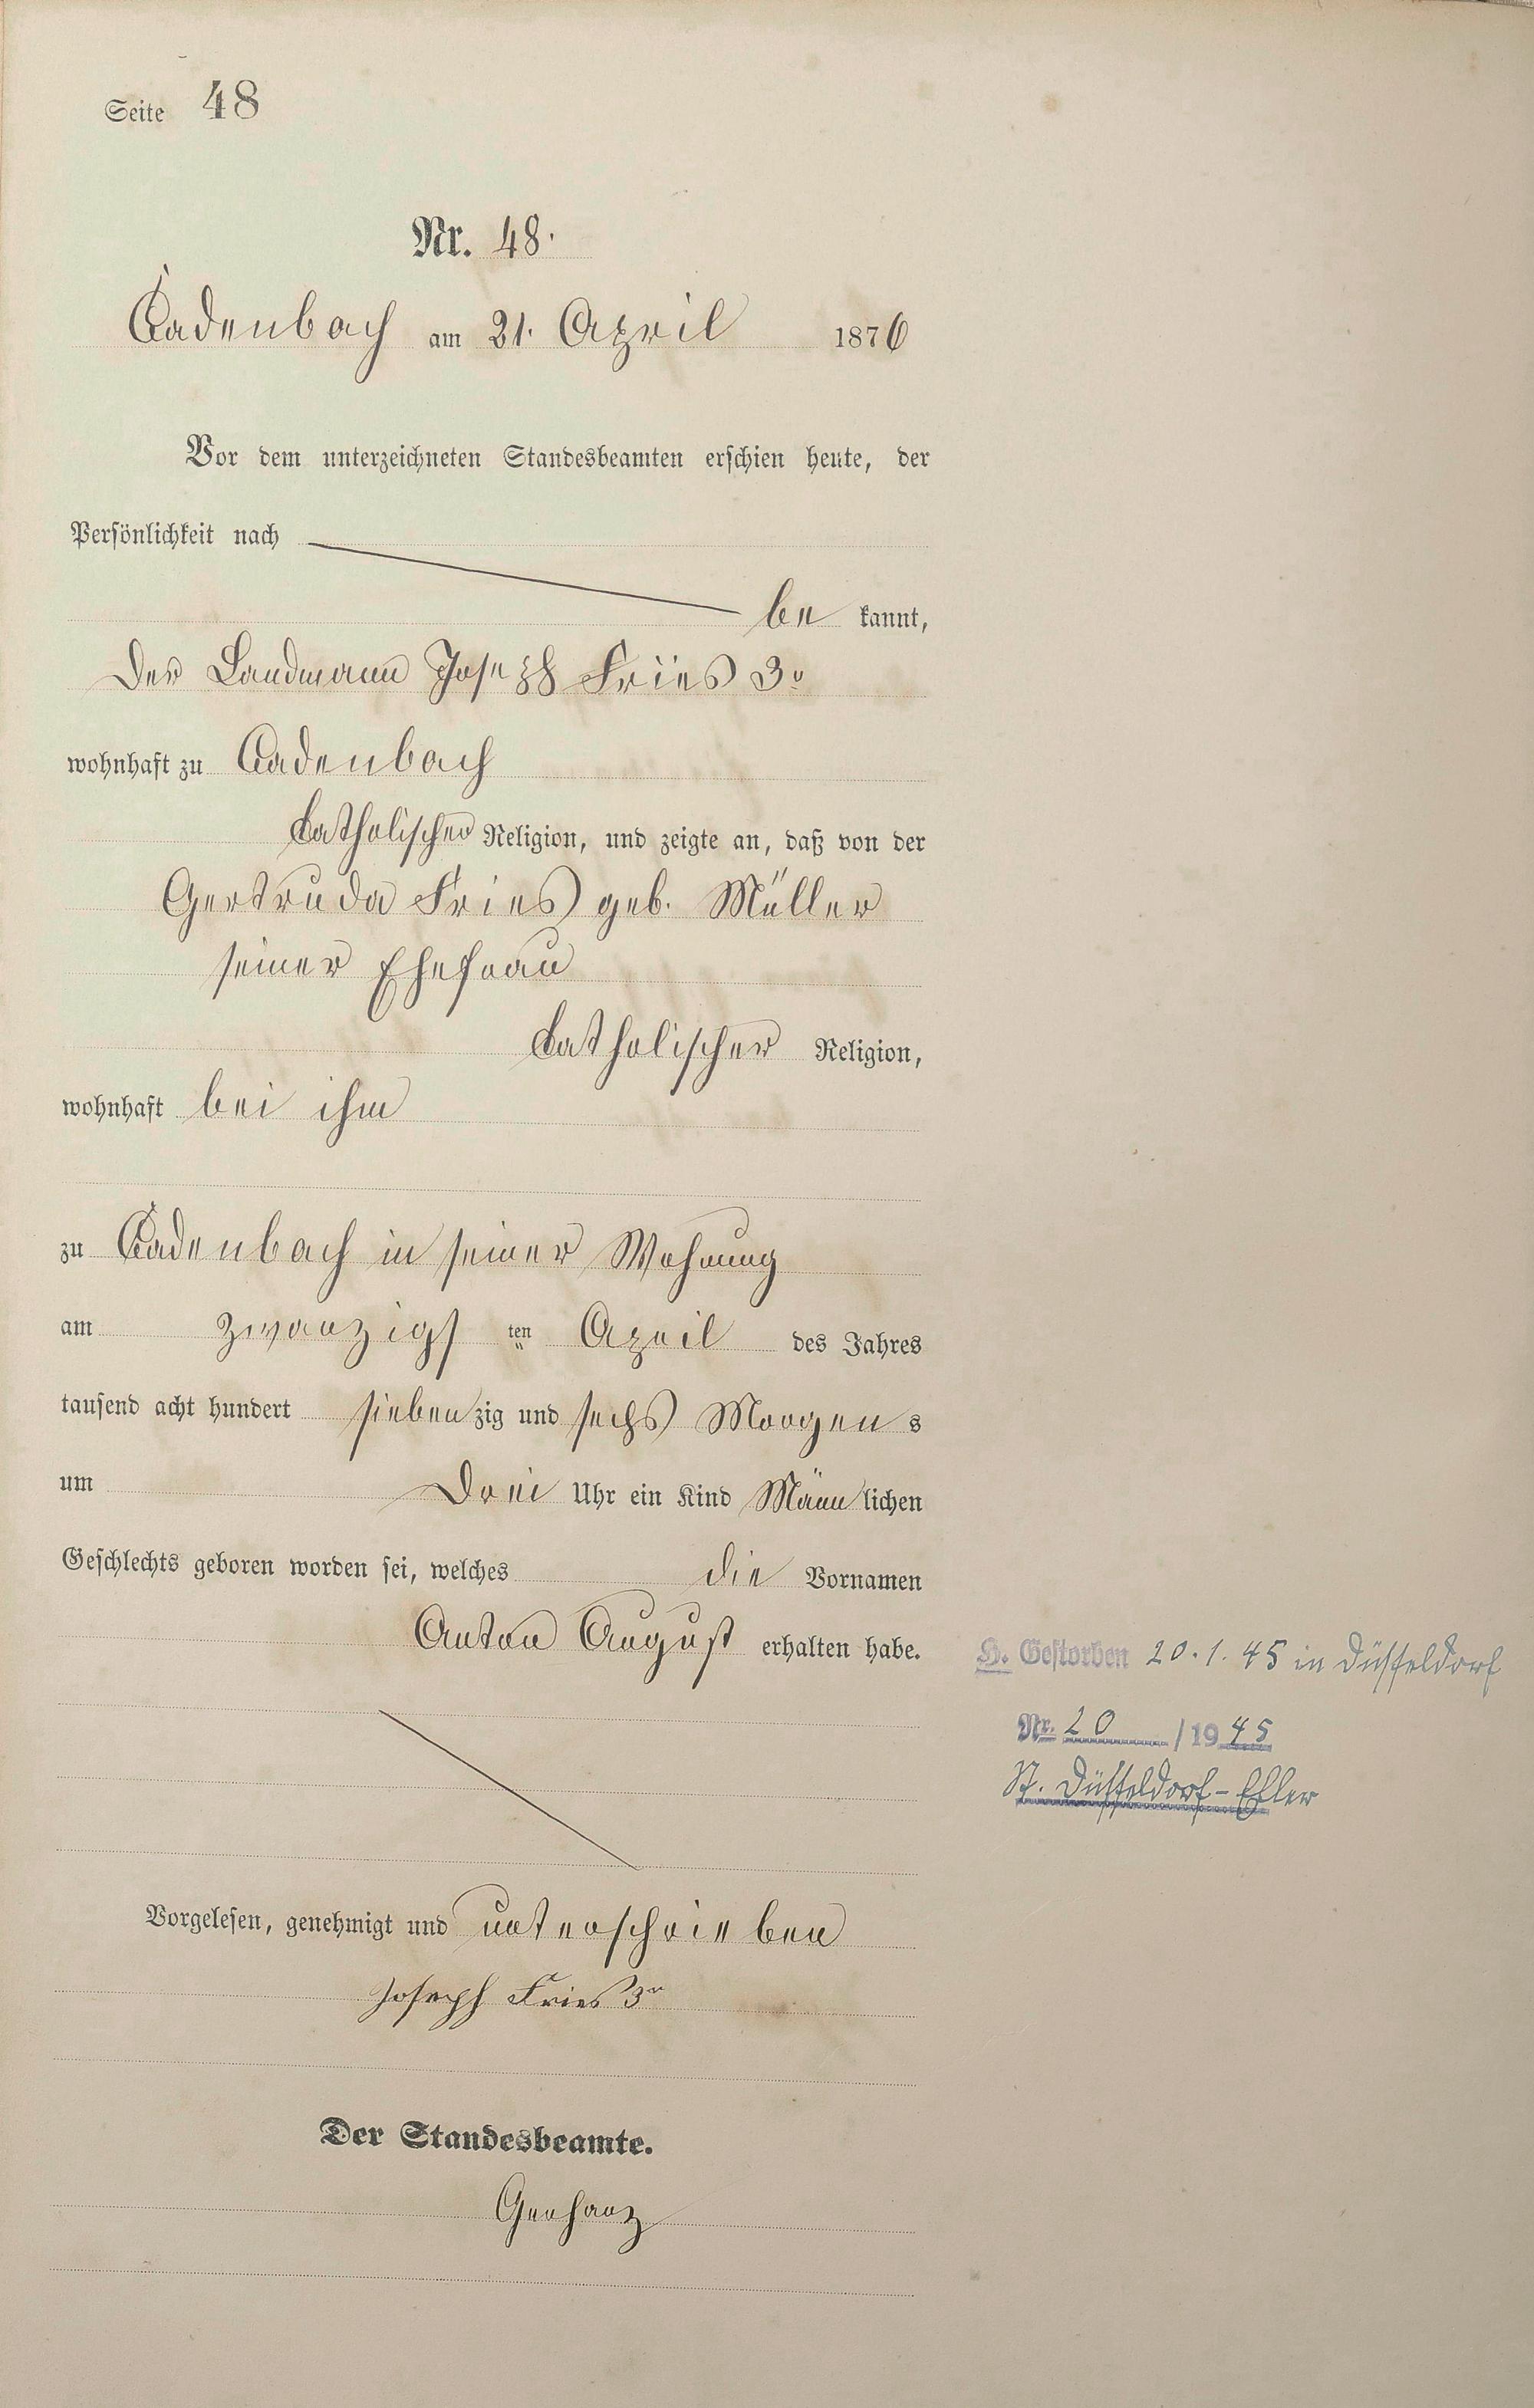 Seite 48
Nr. 48.
Cadenbach am 21. April 1876
Vor dem unterzeichneten Standesbeamten erschien heute, der
Persönlichkeit nach
be kannt,
Der Landmann Joseph Fries 3r
wohnhaft zu Cadenbach
Catholischer Religion, und zeigte an, daß von der
Gertruda Fries geb. Müller
seiner Ehefrau
Catholischer Religion,
wohnhaft bei ihm
zu Cadenbach in seiner Wohnung
am zwanzigs ten April des Jahres
tausend acht hundert sieben zig und sechs Morgens
um Drei Uhr ein Kind Männ lichen
Geschlechts geboren worden sei, welches die Vornamen
Anton August erhalten habe.
H. Gestorben 20.1.45 in Düsseldorf
Nr. 20 /1945
St. Düsseldorf-Eller
Vorgelesen, genehmigt und unterschrieben
Joseph Fries 3r
Der Standesbeamte.